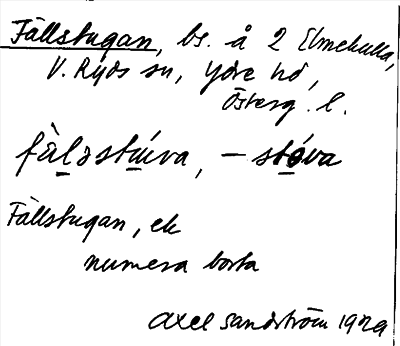 Fällstugan, bs. å 2 Elmekulla,
V. Ryds sn, Ydre hd,
Österg. l.
fä̀l̠əstu̠íva, – stóva
Fällstugan, ek
numera borta
Axel Sandström 1929